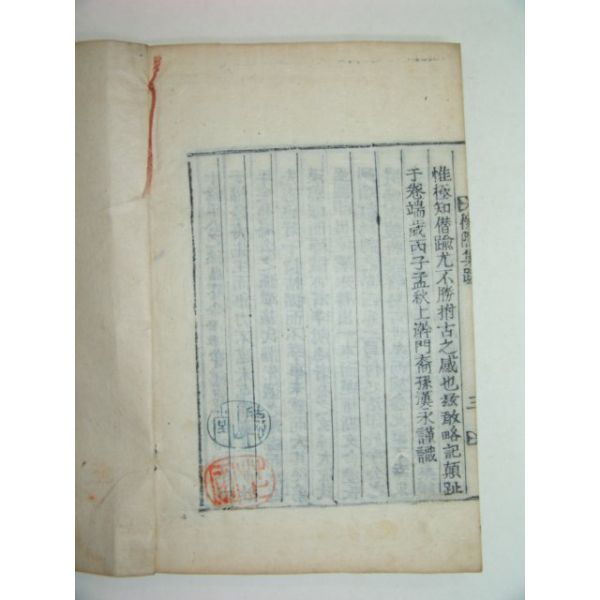 惟極知僭踰尤不勝拊古之感也玆敢略記顛趾
于卷端歲丙子孟秋上澣門裔孫漢永謹識
集
三